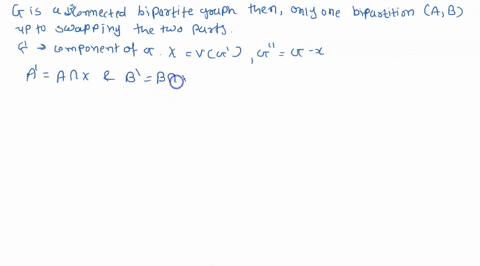 G is a disconnected bipartite graph then, only one bipartition (A, B)
up to swapping the two parts.
G' → component of G. X = V(G'), G'' = G - x
A' = A∩X & B' = B∩